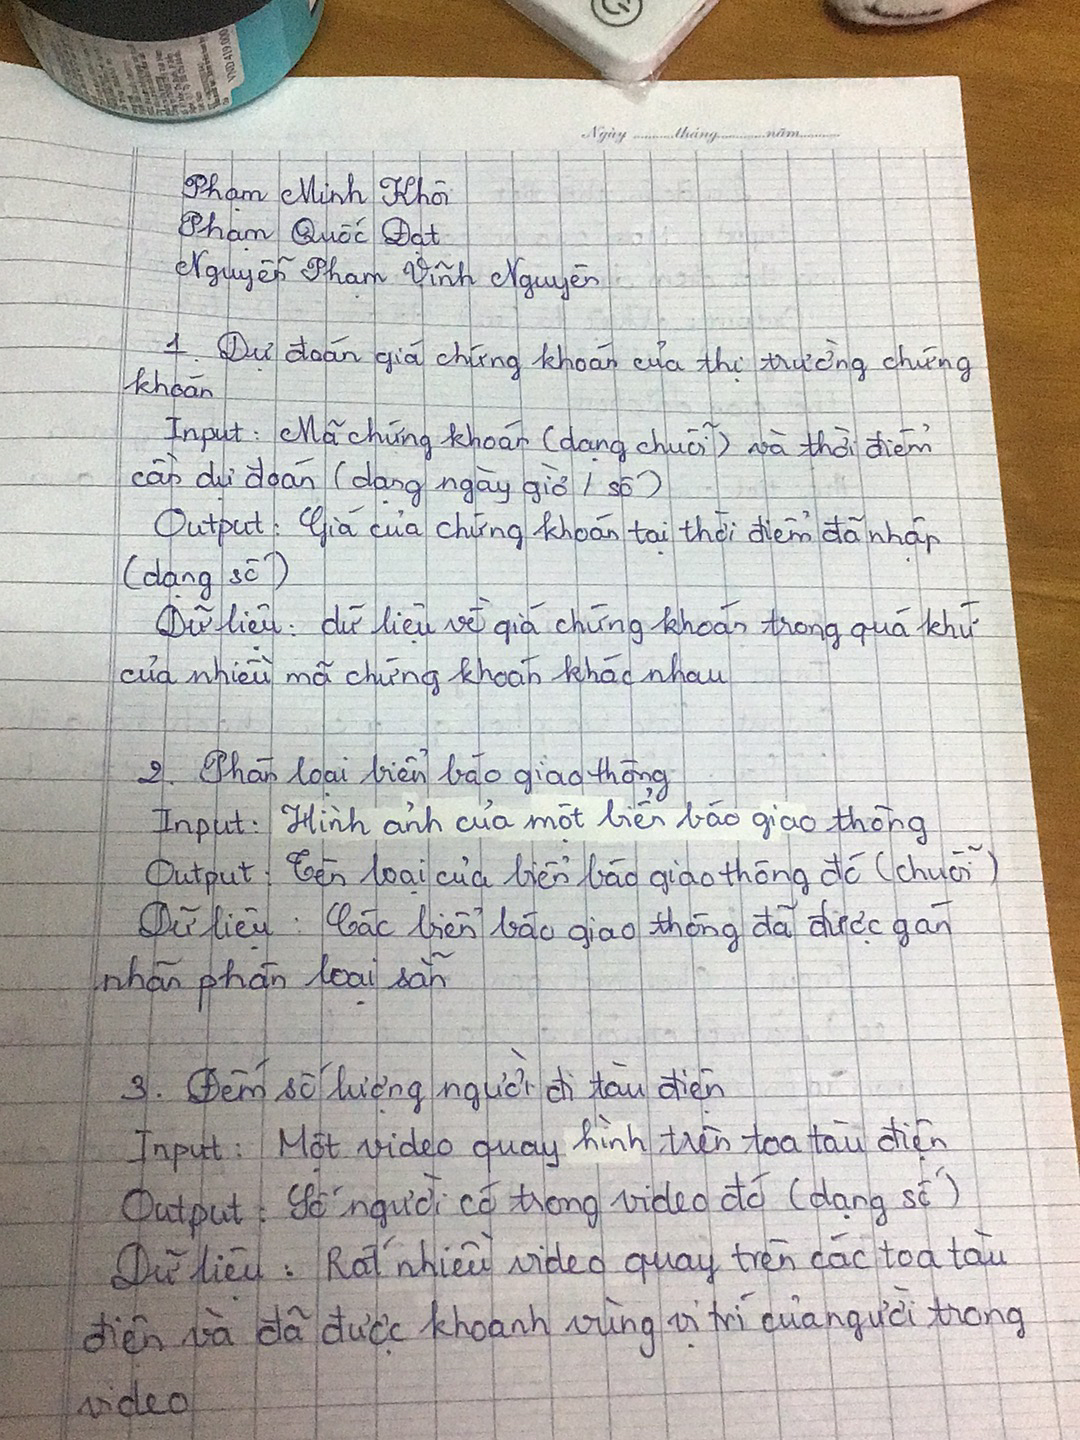 VND 419 0000
Ngày ........tháng..........năm.........
Phạm Minh Khôi
Phạm Quốc Đạt
Nguyễn Phạm Vĩnh Nguyên
1. Dự đoán giá chứng khoán của thị trường chứng
khoán
Input: Mã chứng khoán (dạng chuỗi) và thời điểm
cần dự đoán (dạng ngày giờ / số)
Output: Giá của chứng khoán tại thời điểm đã nhập
(dạng số)
Dữ liệu: dữ liệu về giá chứng khoán trong quá khứ
của nhiều mã chứng khoán khác nhau
2. Phân loại biển báo giao thông
Input: Hình ảnh của một biển báo giao thông
Output: Tên loại của biển báo giao thông đó (chuỗi)
Dữ liệu: Các biển báo giao thông đã được gán
nhãn phân loại sẵn
3. Đếm số lượng người đi tàu điện
Input: Một video quay hình trên toa tàu điện
Output: Số người có trong video đó (dạng số)
Dữ liệu: Rất nhiều video quay trên các toa tàu
điện và đã được khoanh vùng vị trí của người trong
video